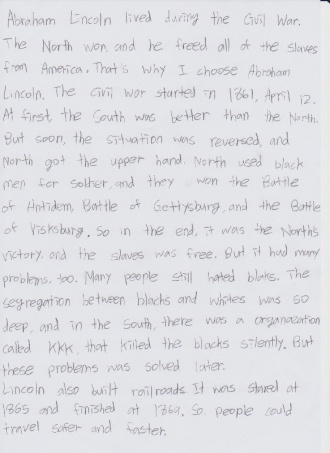 Abraham Lincoln lived during the Civil War.
The North won, and he freed all of the slaves
from America. That's why I choose Abraham
Lincoln. The Civil War started in 1861, April 12.
At first, the South was better than the North.
But soon, the situation was reversed, and
North got the upper hand. North used black
men for soldier, and they won the Battle
of Antidem, Battle of Gettysburg, and the Battle
of Visksburg. So in the end, it was the North's
victory, and the slaves was free. But it had many
problems, too. Many people still hated blaks. The
segregation between blacks and whites was so
deep, and in the South, there was a organazation
called KKK, that killed the blacks silently. But
these problems was solved later.
Lincoln also built railroads. It was stared at
1865 and finished at 1869. So, people could
travel safer and faster.